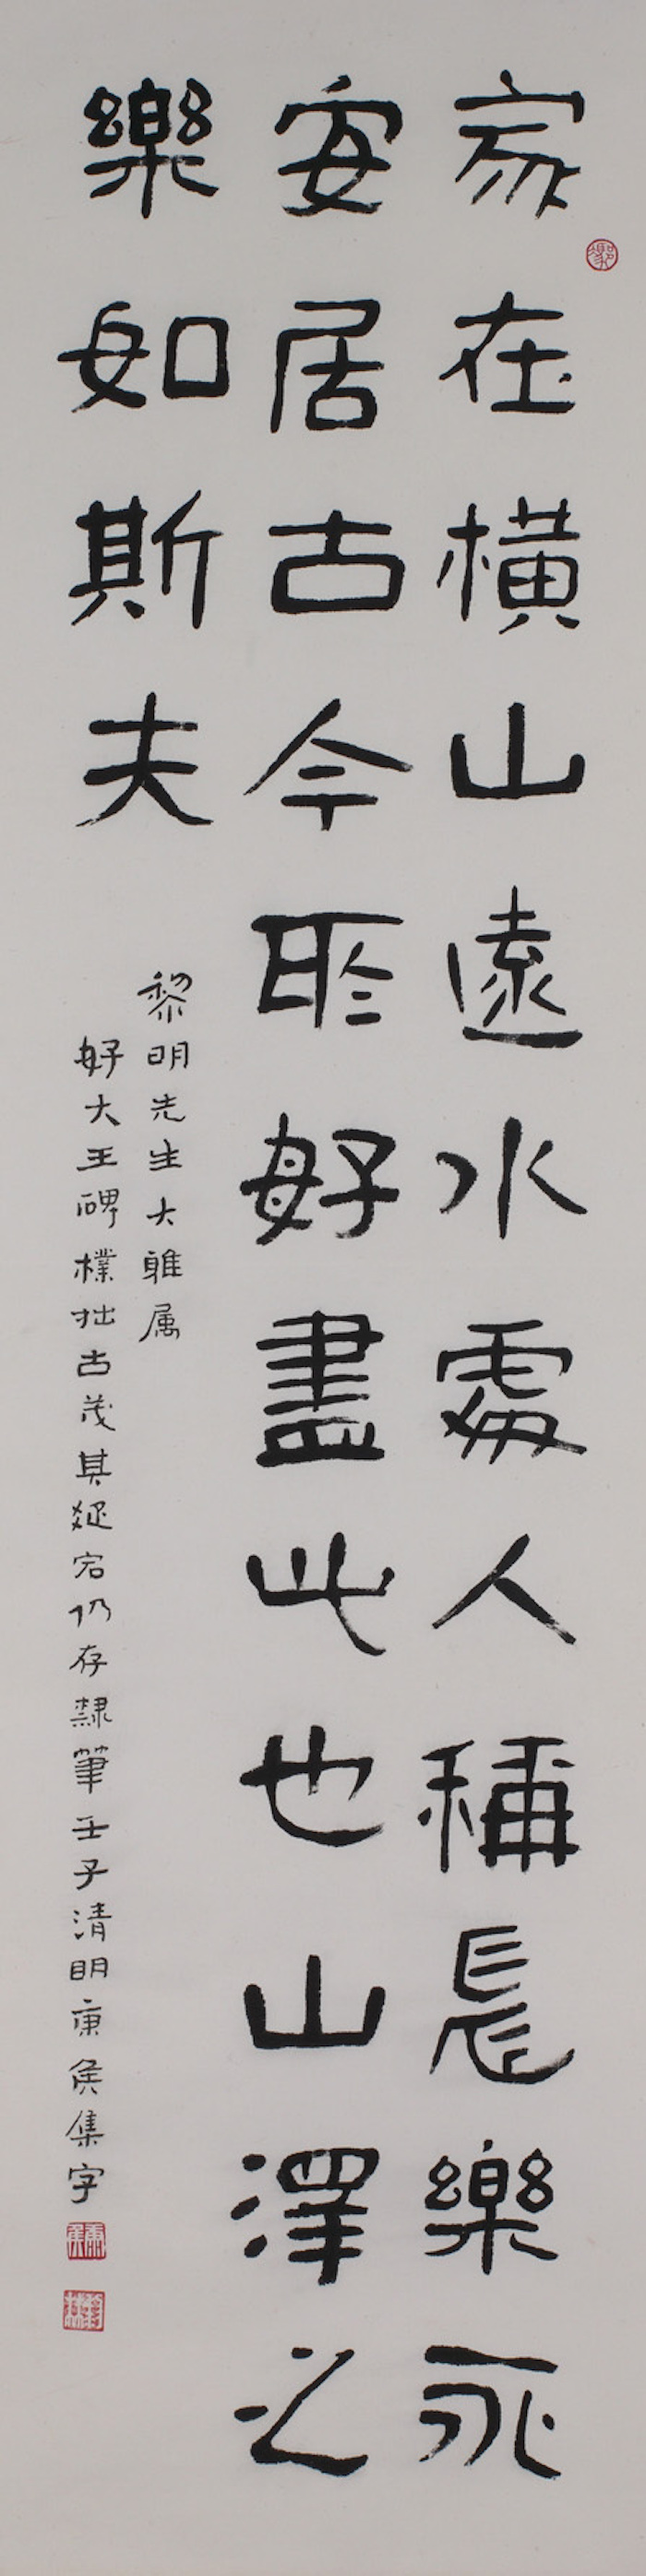 家在横山遠水處人稱長樂永
安居古今所好盡此也山澤之
樂如斯夫
黎明先生大雅属
好大王碑樸拙古茂其宕仍存隸筆壬子清明康侯集字
康侯